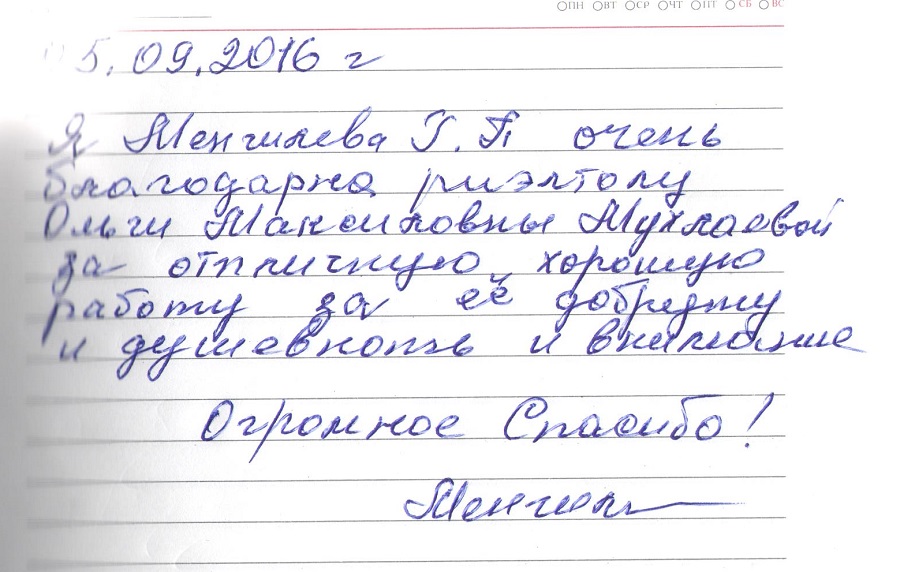 ПН ВТ СР ЧТ ПТ СБ ВС
05.09.2016 г
Я Менгилева Г. П очень
благодарна риэлтолу
Ольги Максимовны Мухлаевой
за отпличную, хорошую
работу за её добрдту
и душевноть и внимание
Огромное Спасибо!